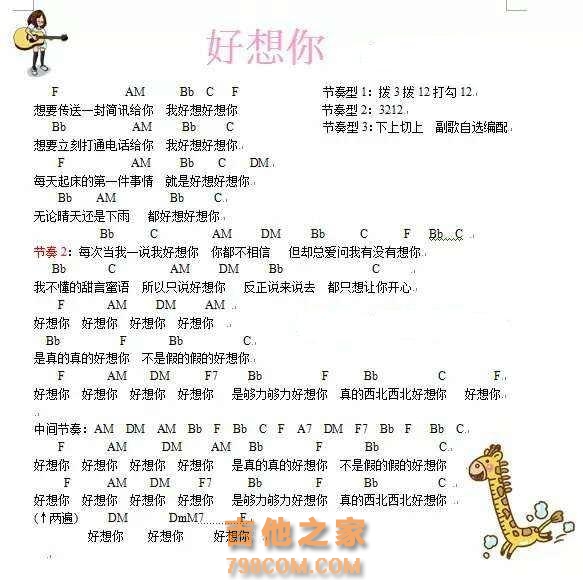 好想你
F AM Bb C F 节奏型1：拨3拨12打勾12
想要传送一封简讯给你 我好想好想你 节奏型2：3212
Bb AM Bb C 节奏型3：下上切上 副歌自选编配
想要立刻打通电话给你 我好想好想你
F AM Bb C DM
每天起床的第一件事情 就是好想好想你
Bb AM Bb C
无论晴天还是下雨 都好想好想你
Bb C AM DM Bb C F Bb C
节奏2：每次当我一说我好想你 你都不相信 但却总爱问我有没有想你
Bb C AM DM Bb C
我不懂的甜言蜜语 所以只说好想你 反正说来说去 都只想让你开心
F AM DM AM
好想你 好想你 好想你 好想你
Bb F Bb C
是真的真的好想你 不是假的假的好想你
F AM DM F7 Bb F Bb C F
好想你 好想你 好想你 好想你 是够力够力好想你 真的西北西北好想你 好想你
中间节奏：AM DM AM Bb F Bb C F A7 DM F7 Bb F Bb C
F AM DM AM Bb F Bb C
好想你 好想你 好想你 好想你 是真的真的好想你 不是假的假的好想你
F AM DM F7 Bb F Bb C
好想你 好想你 好想你 好想你 是够力够力好想你 真的西北西北好想你
(↑两遍) DM DmM7………F
好想你 好想你 好想你
吉他之家
798COM.COM